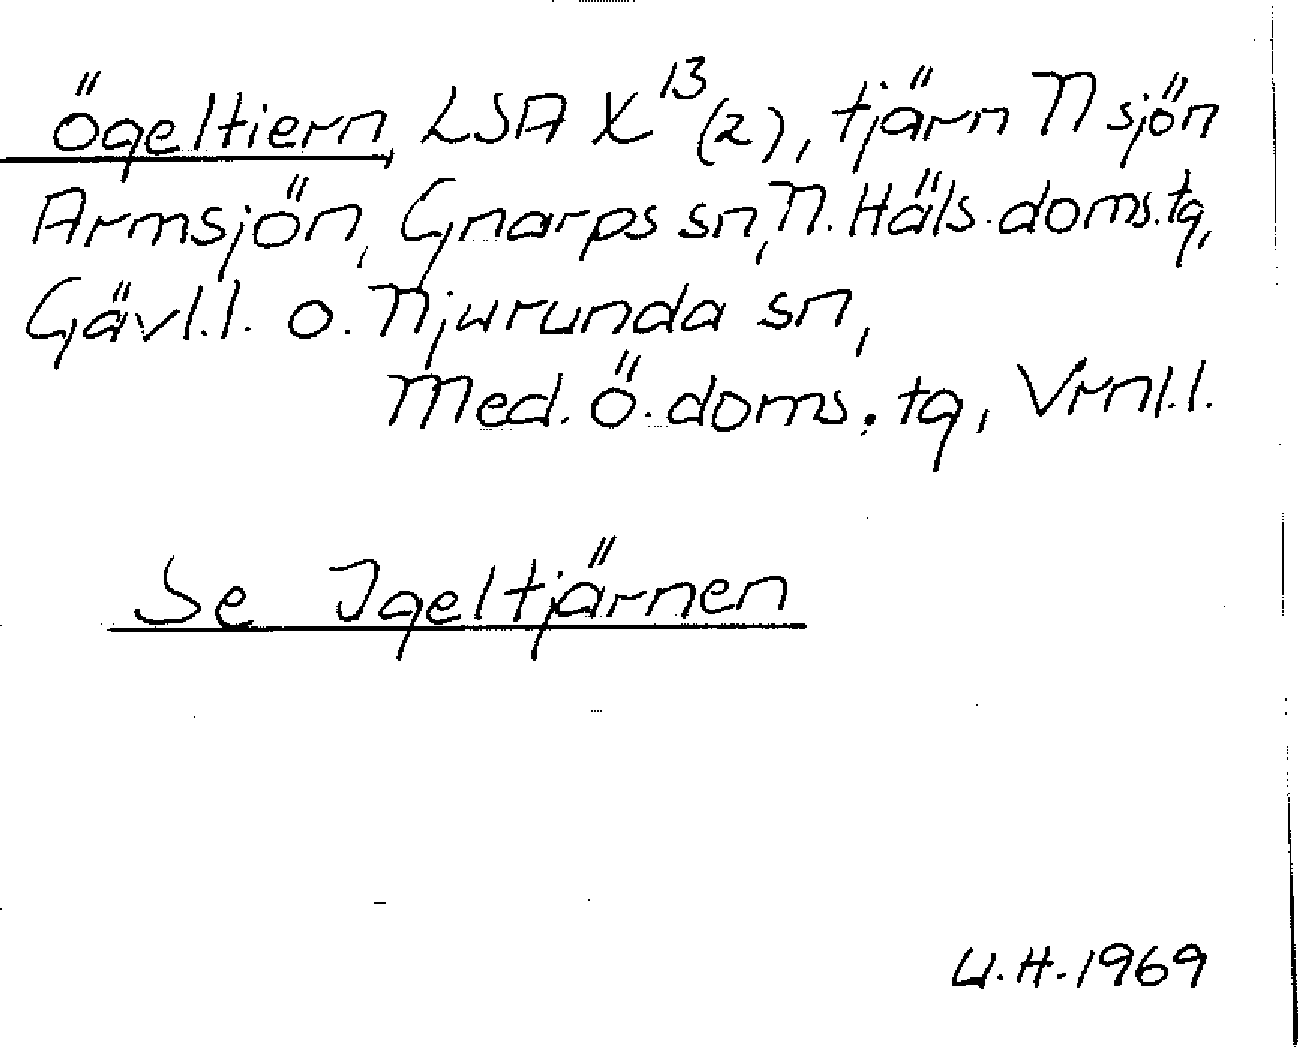 ögeltiern, LSA X¹³(2), tjärn N sjön
Armsjön, Gnarps sn, N. Häls. doms.tg,
Gävl.l. o. Njurunda sn,
Med. ö. doms. tg, Vrnl.l.
Se Igeltjärnen
U.H. 1969